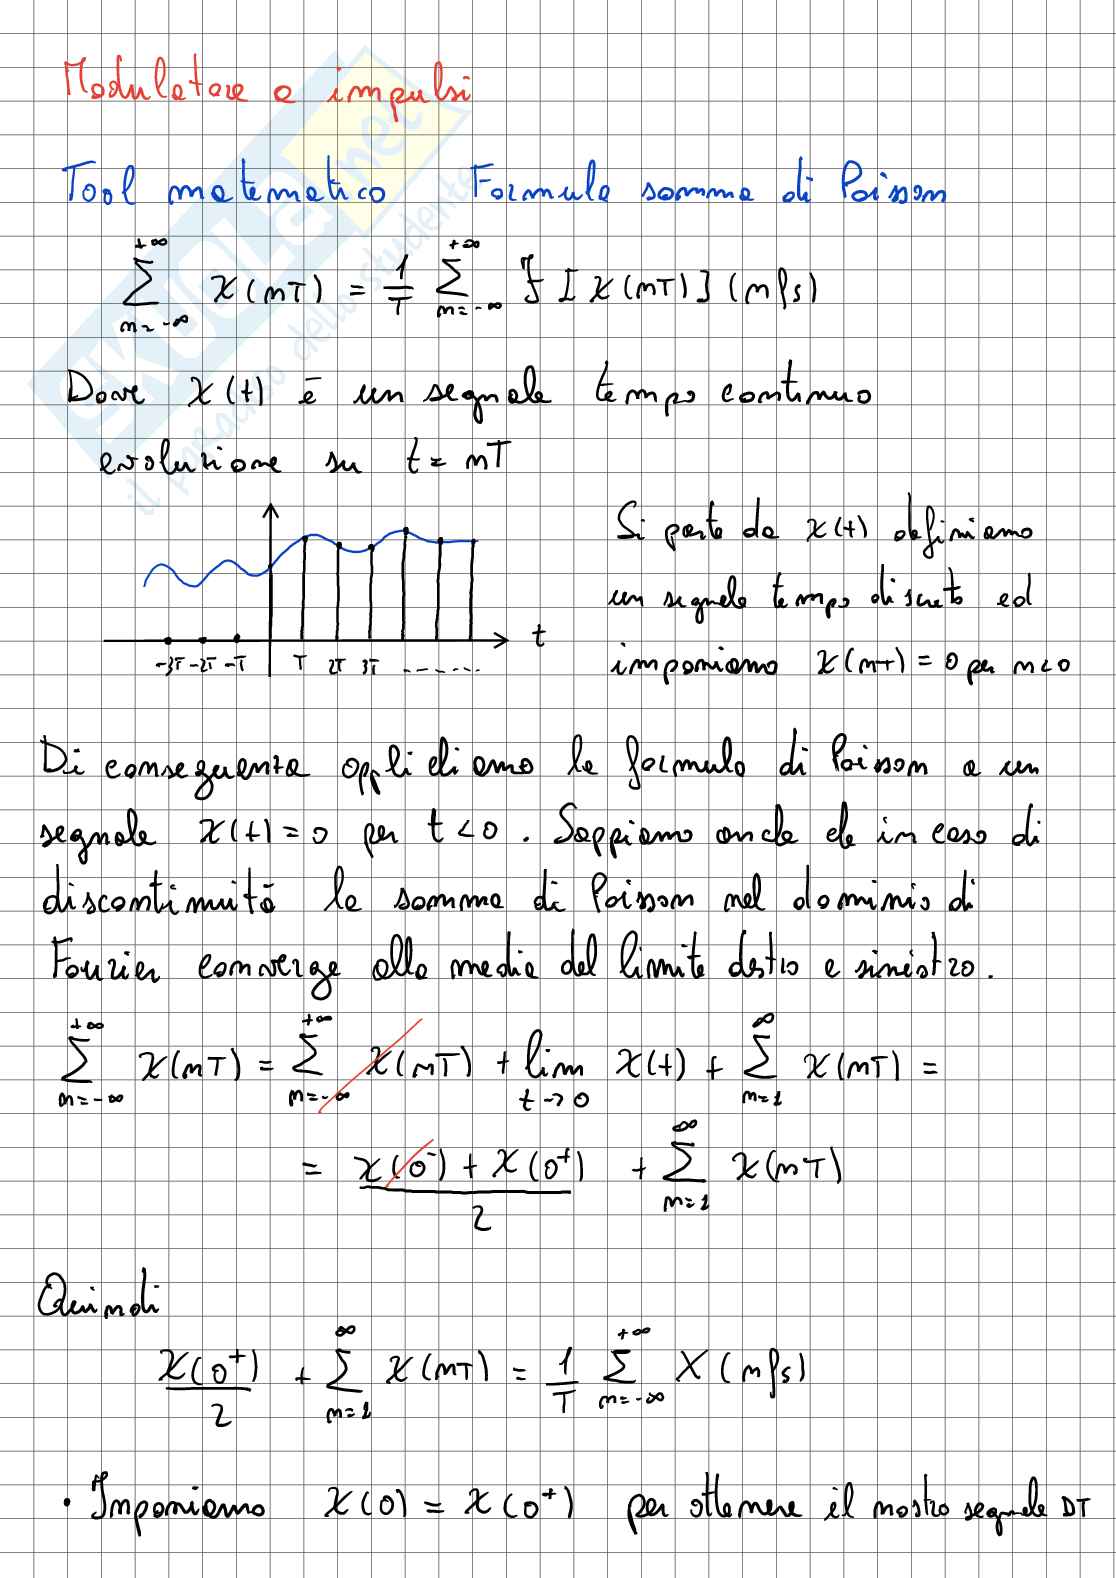 Modulatore a impulsi
Tool matematico Formula somma di Poisson
+∞ +∞
∑ x(nT) = 1/T ∑ ℱ[x(nT)](nfs)
n=-∞ n=-∞
Dove x(t) è un segnale tempo continuo
evoluzione su t = nT
Si parte da x(t) definiamo
un segnale tempo discreto ed
imponiamo x(nT) = 0 per n<0
t
-3T -2T -T T 2T 3T
Di conseguenza applichiamo la formula di Poisson a un
segnale x(t)=0 per t<0. Sappiamo anche che in caso di
discontinuità la somma di Poisson nel dominio di
Fourier converge alla media del limite destro e sinistro.
+∞ +∞ ∞
∑ x(nT) = ∑ x(nT) + lim x(t) + ∑ x(nT) =
n=-∞ n=-∞ t→0 n=1
∞
= x(0⁻) + x(0⁺) / 2 + ∑ x(nT)
n=1
Quindi
∞ +∞
x(0⁺)/2 + ∑ x(nT) = 1/T ∑ X(nfs)
n=1 n=-∞
• Imponiamo x(0) = x(0⁺) per ottenere il nostro segnale DT
SKUOLA.net
il paradiso dello studente